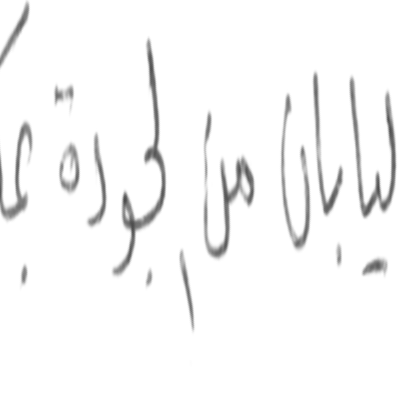 ليابان من الجودة